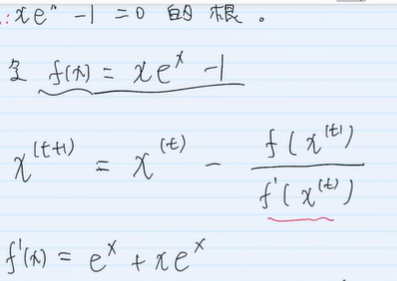 : xeˣ - 1 = 0 的根。
令 f(x) = xeˣ - 1
x^(t+1) = x^(t) - f(x^(t)) / f'(x^(t))
f'(x) = eˣ + xeˣ